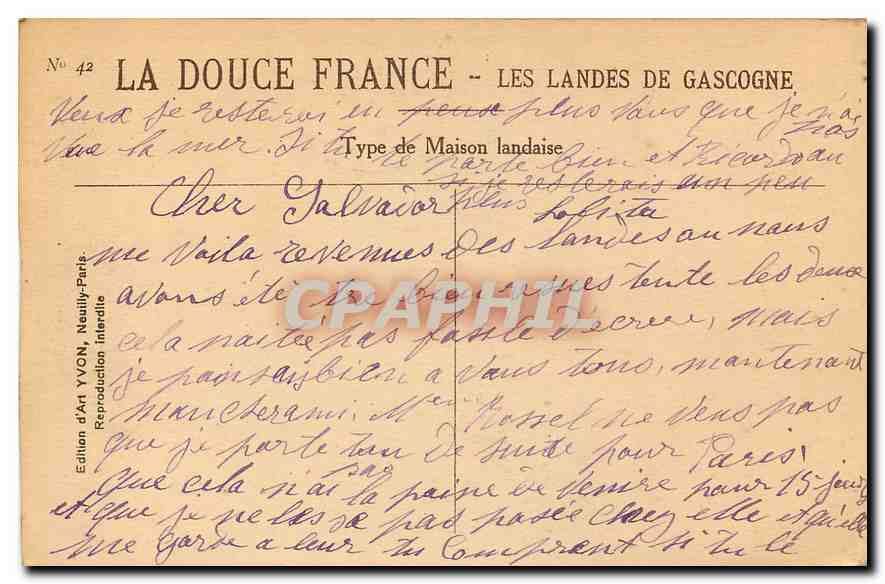 No 42 LA DOUCE FRANCE - LES LANDES DE GASCOGNE
Veux je resterai en peux plus Vous que je n'ai pas
Vue la mer. Si tu
Type de Maison landaise
te porte bien et Ricardo au
si je resterais un peu
Cher Salvador plus Lolita
me Voila revenues des Landes ou nous
avons été tre bien venues toute les deux
cela naitée pas fasile decrire, mais
je pansay bien a Vous tous, mantenant
mancherami. Mme Rossel ne Veus pas
que je parte tou de suide pour Paris
que cela n'ai pas la paine de Venire pour 15 jours
et que je ne les se pas pasée chey elle et qu'elle
me garde a leur tu comprent si tu le
Edition d'Art YVON, Neuilly-Paris.
Reproduction interdite
CPAPHIL